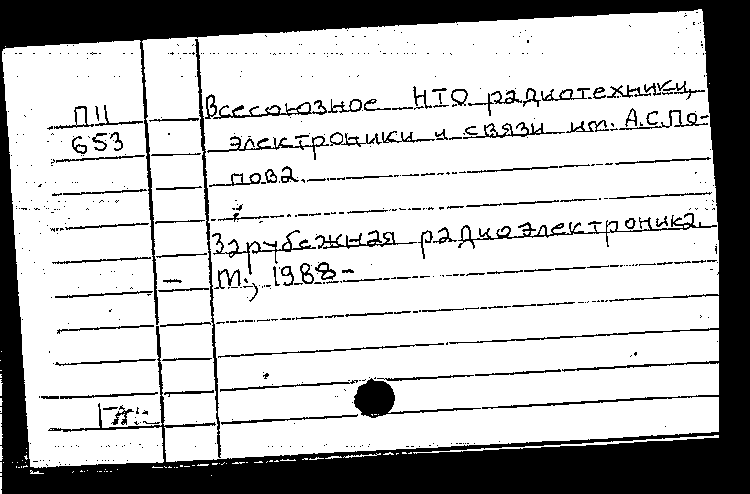 П11
653
Всесоюзное НТО радиотехники,
электроники и связи им. А.С.По-
пова.
Зарубежная радиоэлектроника.
М., 1988-